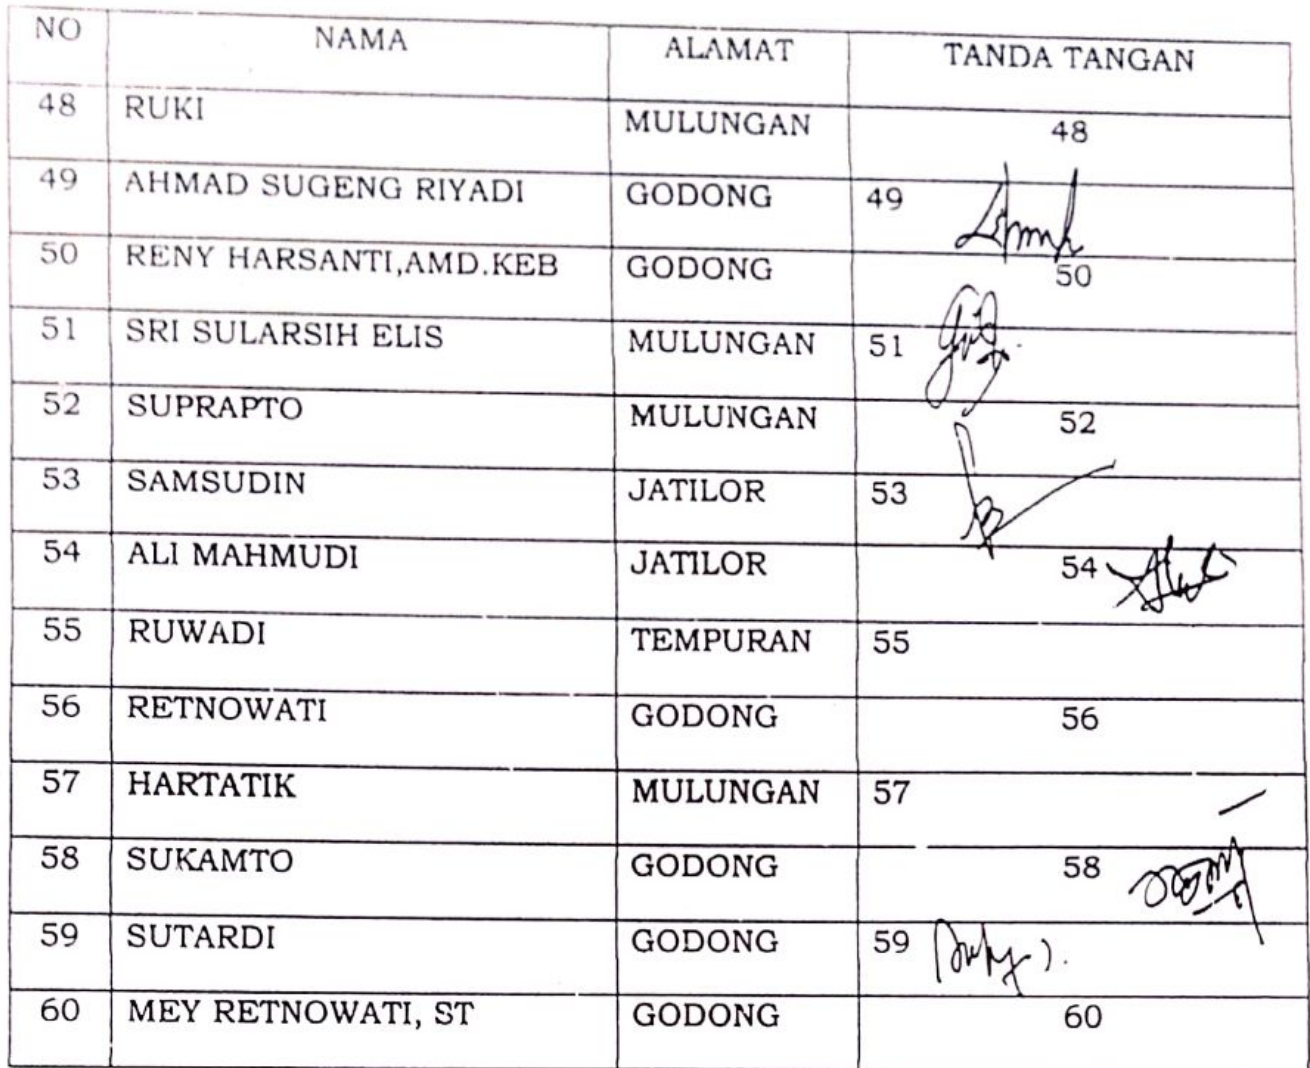 NO NAMA ALAMAT TANDA TANGAN
48 RUKI MULUNGAN 48
49 AHMAD SUGENG RIYADI GODONG 49
50 RENY HARSANTI,AMD.KEB GODONG 50
51 SRI SULARSIH ELIS MULUNGAN 51
52 SUPRAPTO MULUNGAN 52
53 SAMSUDIN JATILOR 53
54 ALI MAHMUDI JATILOR 54
55 RUWADI TEMPURAN 55
56 RETNOWATI GODONG 56
57 HARTATIK MULUNGAN 57
58 SUKAMTO GODONG 58
59 SUTARDI GODONG 59
60 MEY RETNOWATI, ST GODONG 60